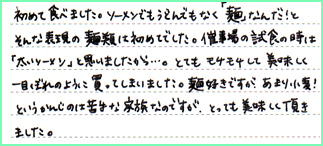 初めて食べました。ソーメンでもうどんでもなく「麺」なんだ!と
そんな表現の麺類は初めてでした。催事場の試食の時は
「太いソーメン」と思いましたから…。とてもモチモチして美味しく
一目ぼれのように買ってしまいました。麺好きですが、あまり小麦!
というかんじのは苦手な家族なのですが、とっても美味しく頂き
ました。